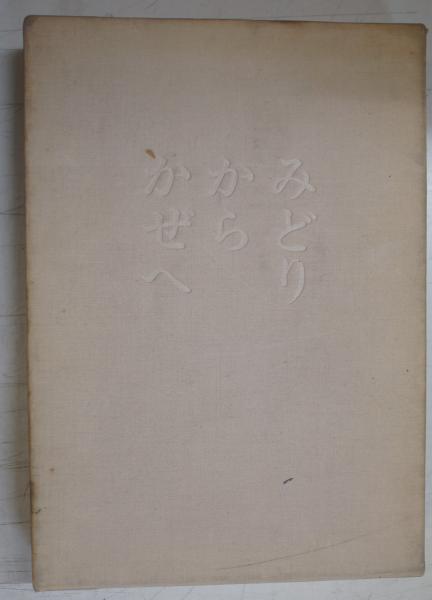 みどり
から
かぜへ